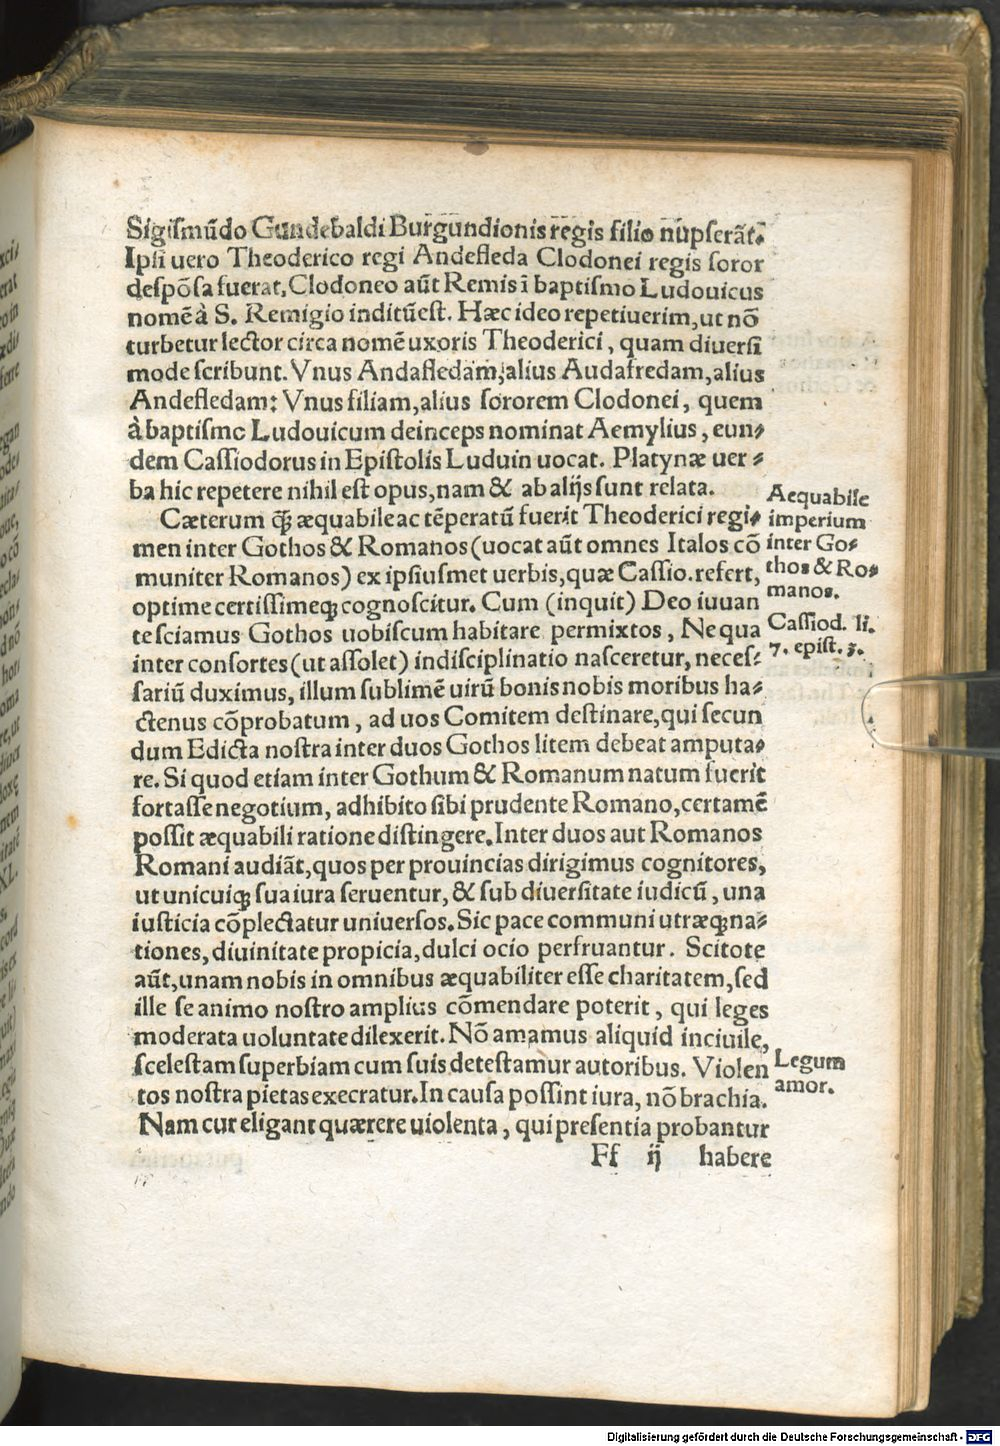 Sigiſmūdo Gundebaldi Burgundionis regis filio nūpſerāt.
Ipſi uero Theoderico regi Andefleda Clodonei regis ſoror
deſpōſa fuerat, Clodoneo aūt Remis ī baptiſmo Ludouicus
nomē à S. Remigio inditū eſt. Hæc ideo repetiuerim, ut nō
turbetur lector circa nomē uxoris Theoderici, quam diuerſi
mode ſcribunt. Vnus Andafledam, alius Audafredam, alius
Andefledam: Vnus filiam, alius ſororem Clodonei, quem
à baptiſmo Ludouicum deinceps nominat Aemylius, eun⸗
dem Caſſiodorus in Epiſtolis Luduin uocat. Platynæ uer⸗
ba hic repetere nihil eſt opus, nam & ab alijs ſunt relata.
Cæterum q̄ꝫ æquabile ac tēperatū fuerit Theoderici regi⸗
men inter Gothos & Romanos (uocat aūt omnes Italos cō
muniter Romanos) ex ipſiuſmet uerbis, quæ Caſſio. refert,
optime certiſſimeqꝫ cognoſcitur. Cum (inquit) Deo iuuan
te ſciamus Gothos uobiſcum habitare permixtos, Ne qua
inter conſortes (ut aſſolet) indiſciplinatio naſceretur, neceſ⸗
ſariū duximus, illum ſublimē uirū bonis nobis moribus ha⸗
ctenus cōprobatum, ad uos Comitem deſtinare, qui ſecun
dum Edicta noſtra inter duos Gothos litem debeat amputa⸗
re. Si quod etiam inter Gothum & Romanum natum fuerit
fortaſſe negotium, adhibito ſibi prudente Romano, certamē
poſſit æquabili ratione diſtingere. Inter duos aut Romanos
Romani audiāt, quos per prouincias dirigimus cognitores,
ut unicuiqꝫ ſua iura ſeruentur, & ſub diuerſitate iudicū, una
iuſticia cōplectatur uniuerſos. Sic pace communi utræqꝫ na⸗
tiones, diuinitate propicia, dulci ocio perfruantur. Scitote
aūt, unam nobis in omnibus æquabiliter eſſe charitatem, ſed
ille ſe animo noſtro amplius cōmendare poterit, qui leges
moderata uoluntate dilexerit. Nō amamus aliquid inciuile,
ſceleſtam ſuperbiam cum ſuis deteſtamur autoribus. Violen
tos noſtra pietas execratur. In cauſa poſſint iura, nō brachia.
Nam cur eligant quærere uiolenta, qui preſentia probantur
Ff ij habere
Aequabile
imperium
inter Go⸗
thos & Ro⸗
manos.
Caſſiod. li.
7. epiſt. 3.
Legum
amor.
Digitalisierung gefördert durch die Deutsche Forschungsgemeinschaft - DFG